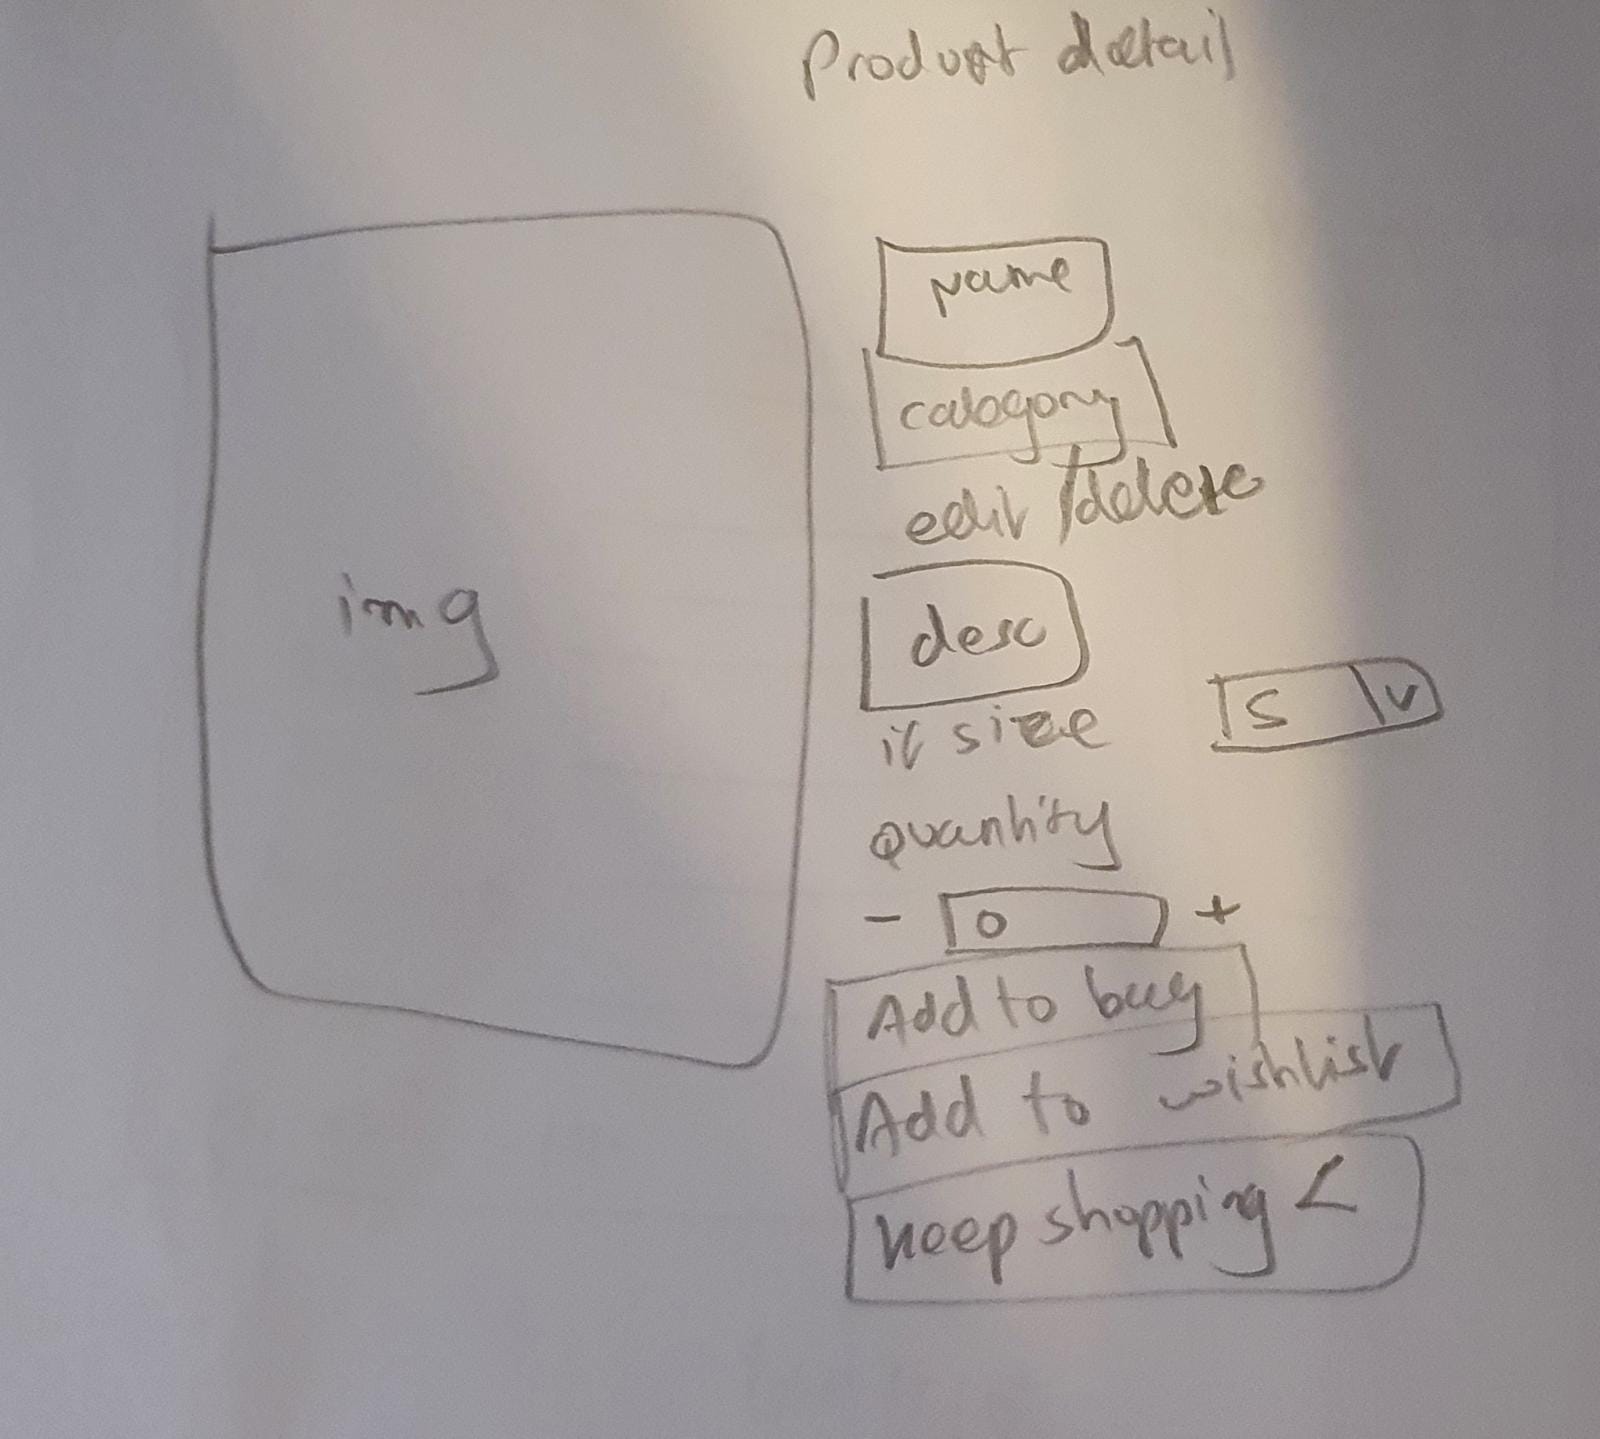 Product detail
img
Name
category
edit / delete
desc
if size
S V
quantity
- 0 +
Add to buy
Add to wishlist
keep shopping <